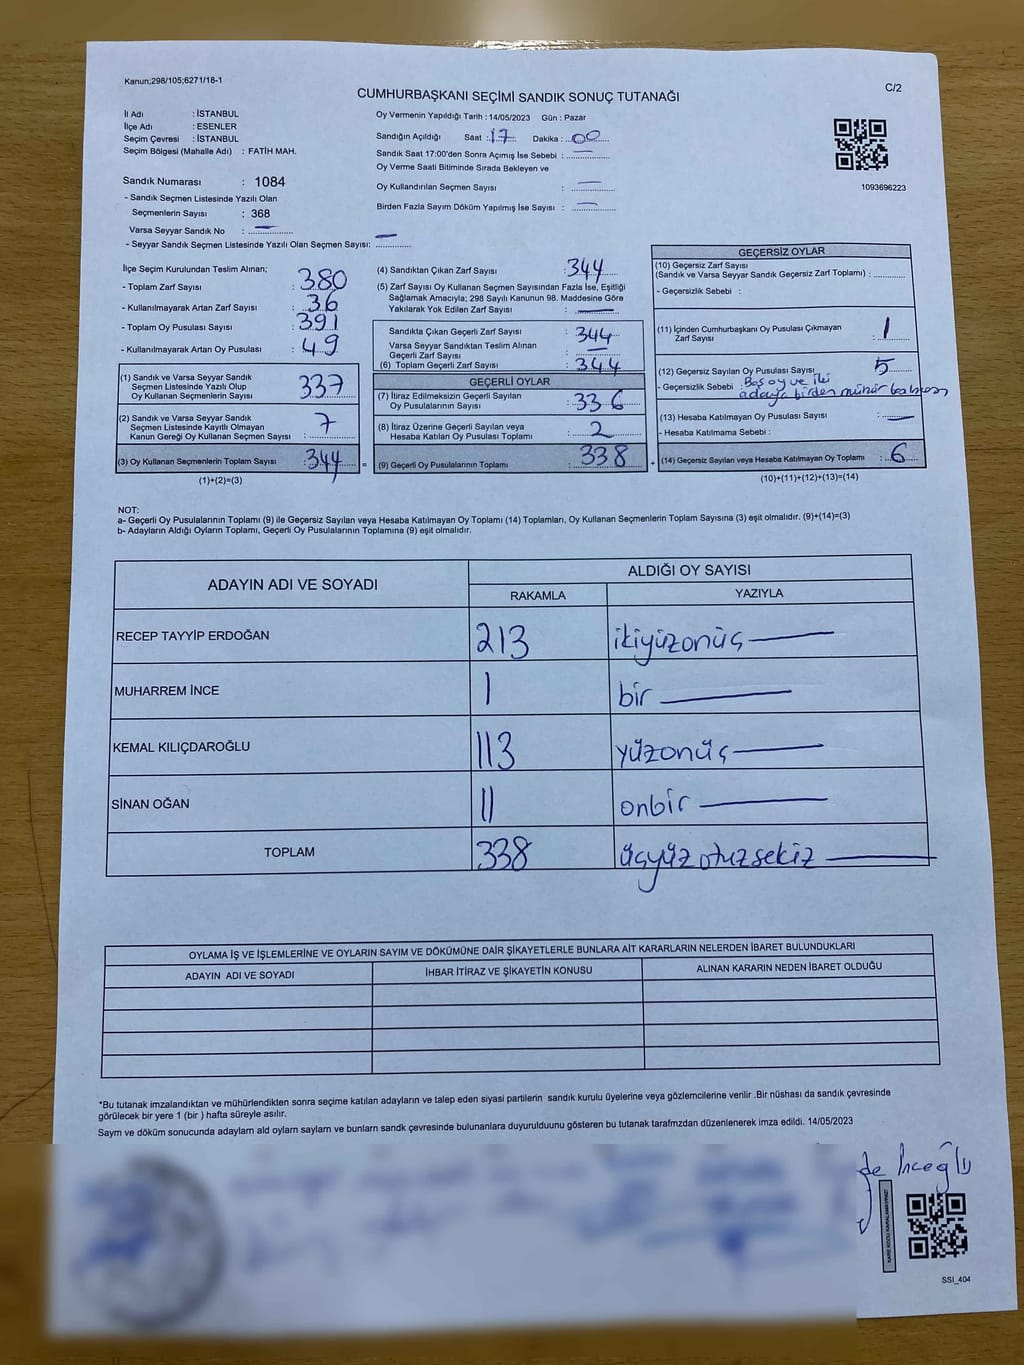 Kanun;298/105;6271/18-1
C/2
CUMHURBAŞKANI SEÇİMİ SANDIK SONUÇ TUTANAĞI
İl Adı : İSTANBUL
İlçe Adı : ESENLER
Seçim Çevresi : İSTANBUL
Seçim Bölgesi (Mahalle Adı) : FATİH MAH.
Oy Vermenin Yapıldığı Tarih : 14/05/2023 Gün : Pazar
Sandığın Açıldığı Saat : 17 Dakika : 00
Sandık Saat 17:00'den Sonra Açımış İse Sebebi :
Oy Verme Saati Bitiminde Sırada Bekleyen ve
Oy Kullandırılan Seçmen Sayısı : —
Birden Fazla Sayım Döküm Yapılmış İse Sayısı : —
1093696223
Sandık Numarası : 1084
- Sandık Seçmen Listesinde Yazılı Olan
Seçmenlerin Sayısı : 368
Varsa Seyyar Sandık No : —
- Seyyar Sandık Seçmen Listesinde Yazılı Olan Seçmen Sayısı: —
İlçe Seçim Kurulundan Teslim Alınan;
- Toplam Zarf Sayısı : 380
- Kullanılmayarak Artan Zarf Sayısı : 36
- Toplam Oy Pusulası Sayısı : 391
- Kullanılmayarak Artan Oy Pusulası : 49
(1) Sandık ve Varsa Seyyar Sandık
Seçmen Listesinde Yazılı Olup
Oy Kullanan Seçmenlerin Sayısı : 337
(2) Sandık ve Varsa Seyyar Sandık
Seçmen Listesinde Kayıtlı Olmayan
Kanun Gereği Oy Kullanan Seçmen Sayısı : 7
(3) Oy Kullanan Seçmenlerin Toplam Sayısı : 344
(1)+(2)=(3)
(4) Sandıktan Çıkan Zarf Sayısı : 344
(5) Zarf Sayısı Oy Kullanan Seçmen Sayısından Fazla İse, Eşitliği
Sağlamak Amacıyla; 298 Sayılı Kanunun 98. Maddesine Göre
Yakılarak Yok Edilen Zarf Sayısı : —
Sandıkta Çıkan Geçerli Zarf Sayısı : 344
Varsa Seyyar Sandıktan Teslim Alınan
Geçerli Zarf Sayısı : —
(6) Toplam Geçerli Zarf Sayısı : 344
GEÇERLİ OYLAR
(7) İtiraz Edilmeksizin Geçerli Sayılan
Oy Pusulalarının Sayısı : 336
(8) İtiraz Üzerine Geçerli Sayılan veya
Hesaba Katılan Oy Pusulası Toplamı : 2
= (9) Geçerli Oy Pusulalarının Toplamı : 338
GEÇERSİZ OYLAR
(10) Geçersiz Zarf Sayısı
(Sandık ve Varsa Seyyar Sandık Geçersiz Zarf Toplamı) :
- Geçersizlik Sebebi :
(11) İçinden Cumhurbaşkanı Oy Pusulası Çıkmayan
Zarf Sayısı : 1
(12) Geçersiz Sayılan Oy Pusulası Sayısı : 5
- Geçersizlik Sebebi : Boş oy ve iki
adaya birden mühür basılması
(13) Hesaba Katılmayan Oy Pusulası Sayısı : —
- Hesaba Katılmama Sebebi :
+ (14) Geçersiz Sayılan veya Hesaba Katılmayan Oy Toplamı : 6
(10)+(11)+(12)+(13)=(14)
NOT:
a- Geçerli Oy Pusulalarının Toplamı (9) ile Geçersiz Sayılan veya Hesaba Katılmayan Oy Toplamı (14) Toplamları, Oy Kullanan Seçmenlerin Toplam Sayısına (3) eşit olmalıdır. (9)+(14)=(3)
b- Adayların Aldığı Oyların Toplamı, Geçerli Oy Pusulalarının Toplamına (9) eşit olmalıdır.
ADAYIN ADI VE SOYADI ALDIĞI OY SAYISI
RAKAMLA YAZIYLA
RECEP TAYYİP ERDOĞAN 213 ikiyüzonüç —
MUHARREM İNCE 1 bir —
KEMAL KILIÇDAROĞLU 113 yüzonüç —
SİNAN OĞAN 11 onbir —
TOPLAM 338 üçyüz otuzsekiz —
OYLAMA İŞ VE İŞLEMLERİNE VE OYLARIN SAYIM VE DÖKÜMÜNE DAİR ŞİKAYETLERLE BUNLARA AİT KARARLARIN NELERDEN İBARET BULUNDUKLARI
ADAYIN ADI VE SOYADI İHBAR İTİRAZ VE ŞİKAYETİN KONUSU ALINAN KARARIN NEDEN İBARET OLDUĞU
*Bu tutanak imzalandıktan ve mühürlendikten sonra seçime katılan adayların ve talep eden siyasi partilerin sandık kurulu üyelerine veya gözlemcilerine verilir .Bir nüshası da sandık çevresinde
görülecek bir yere 1 (bir ) hafta süreyle asılır.
Sayım ve döküm sonucunda adayların ald oyların saylarn ve bunlarn sandk çevresinde bulunanlara duyurulduunu gösteren bu tutanak tarafmzdan düzenlenerek imza edildi. 14/05/2023
İnceoğlu
SSI_404